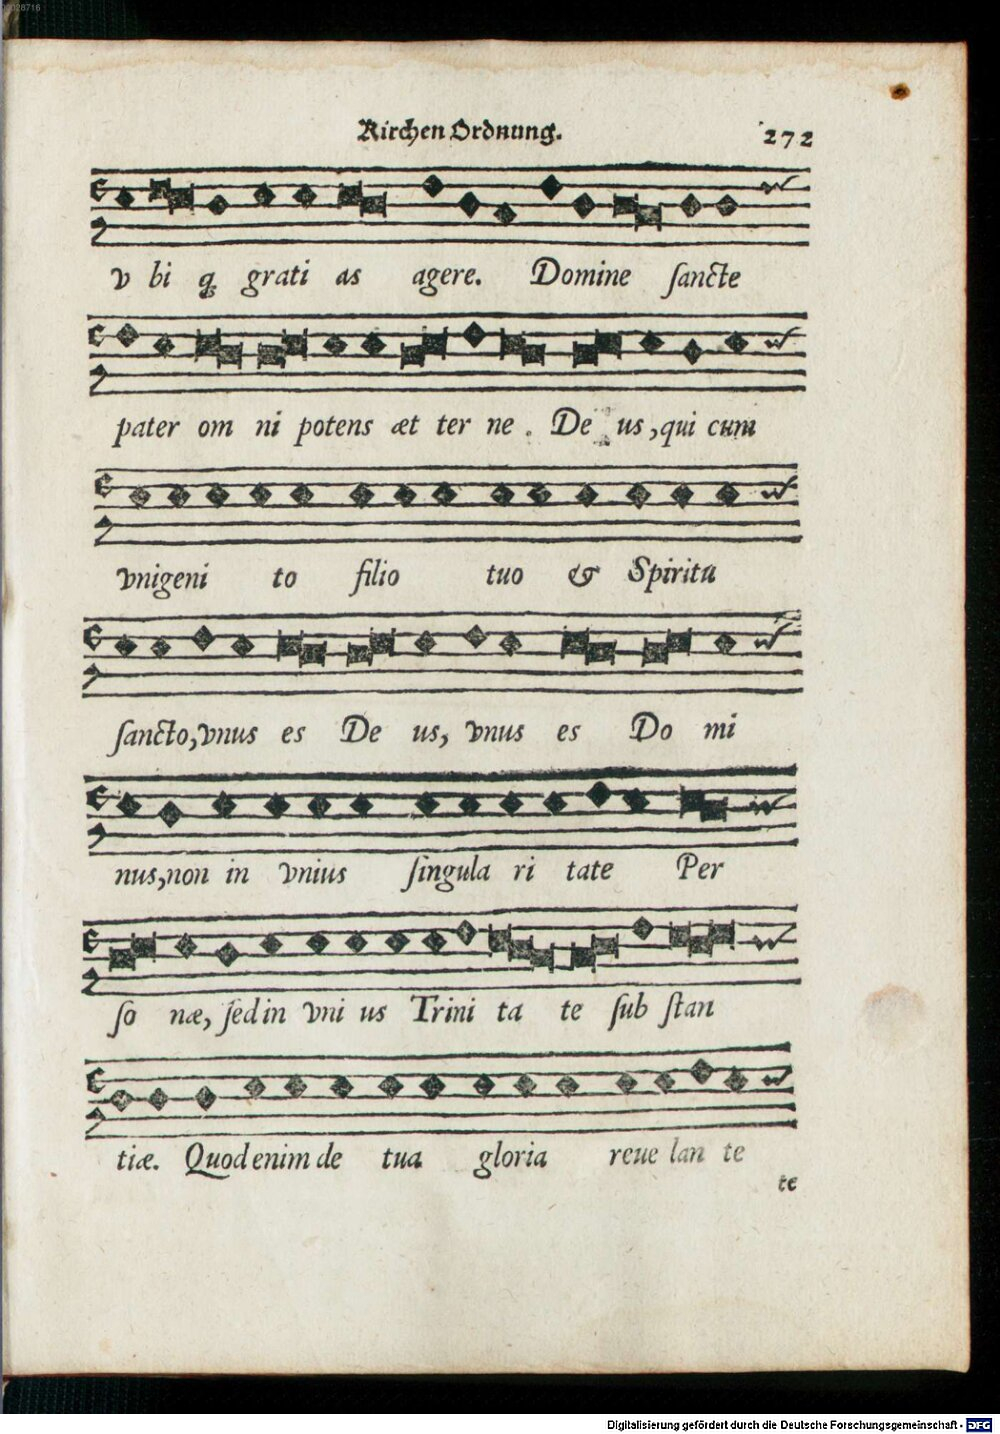 00028716
Kirchen Ordnung.
272
v bi q grati as agere. Domine ſancte
pater om ni potens æt ter ne. De us, qui cum
vnigeni to filio tuo & Spiritu
ſancto, vnus es De us, vnus es Do mi
nus, non in vnius ſingula ri tate Per
ſo næ, ſed in vni us Trini ta te ſub ſtan
tiæ. Quod enim de tua gloria reue lan te
te
Digitalisierung gefördert durch die Deutsche Forschungsgemeinschaft - DFG